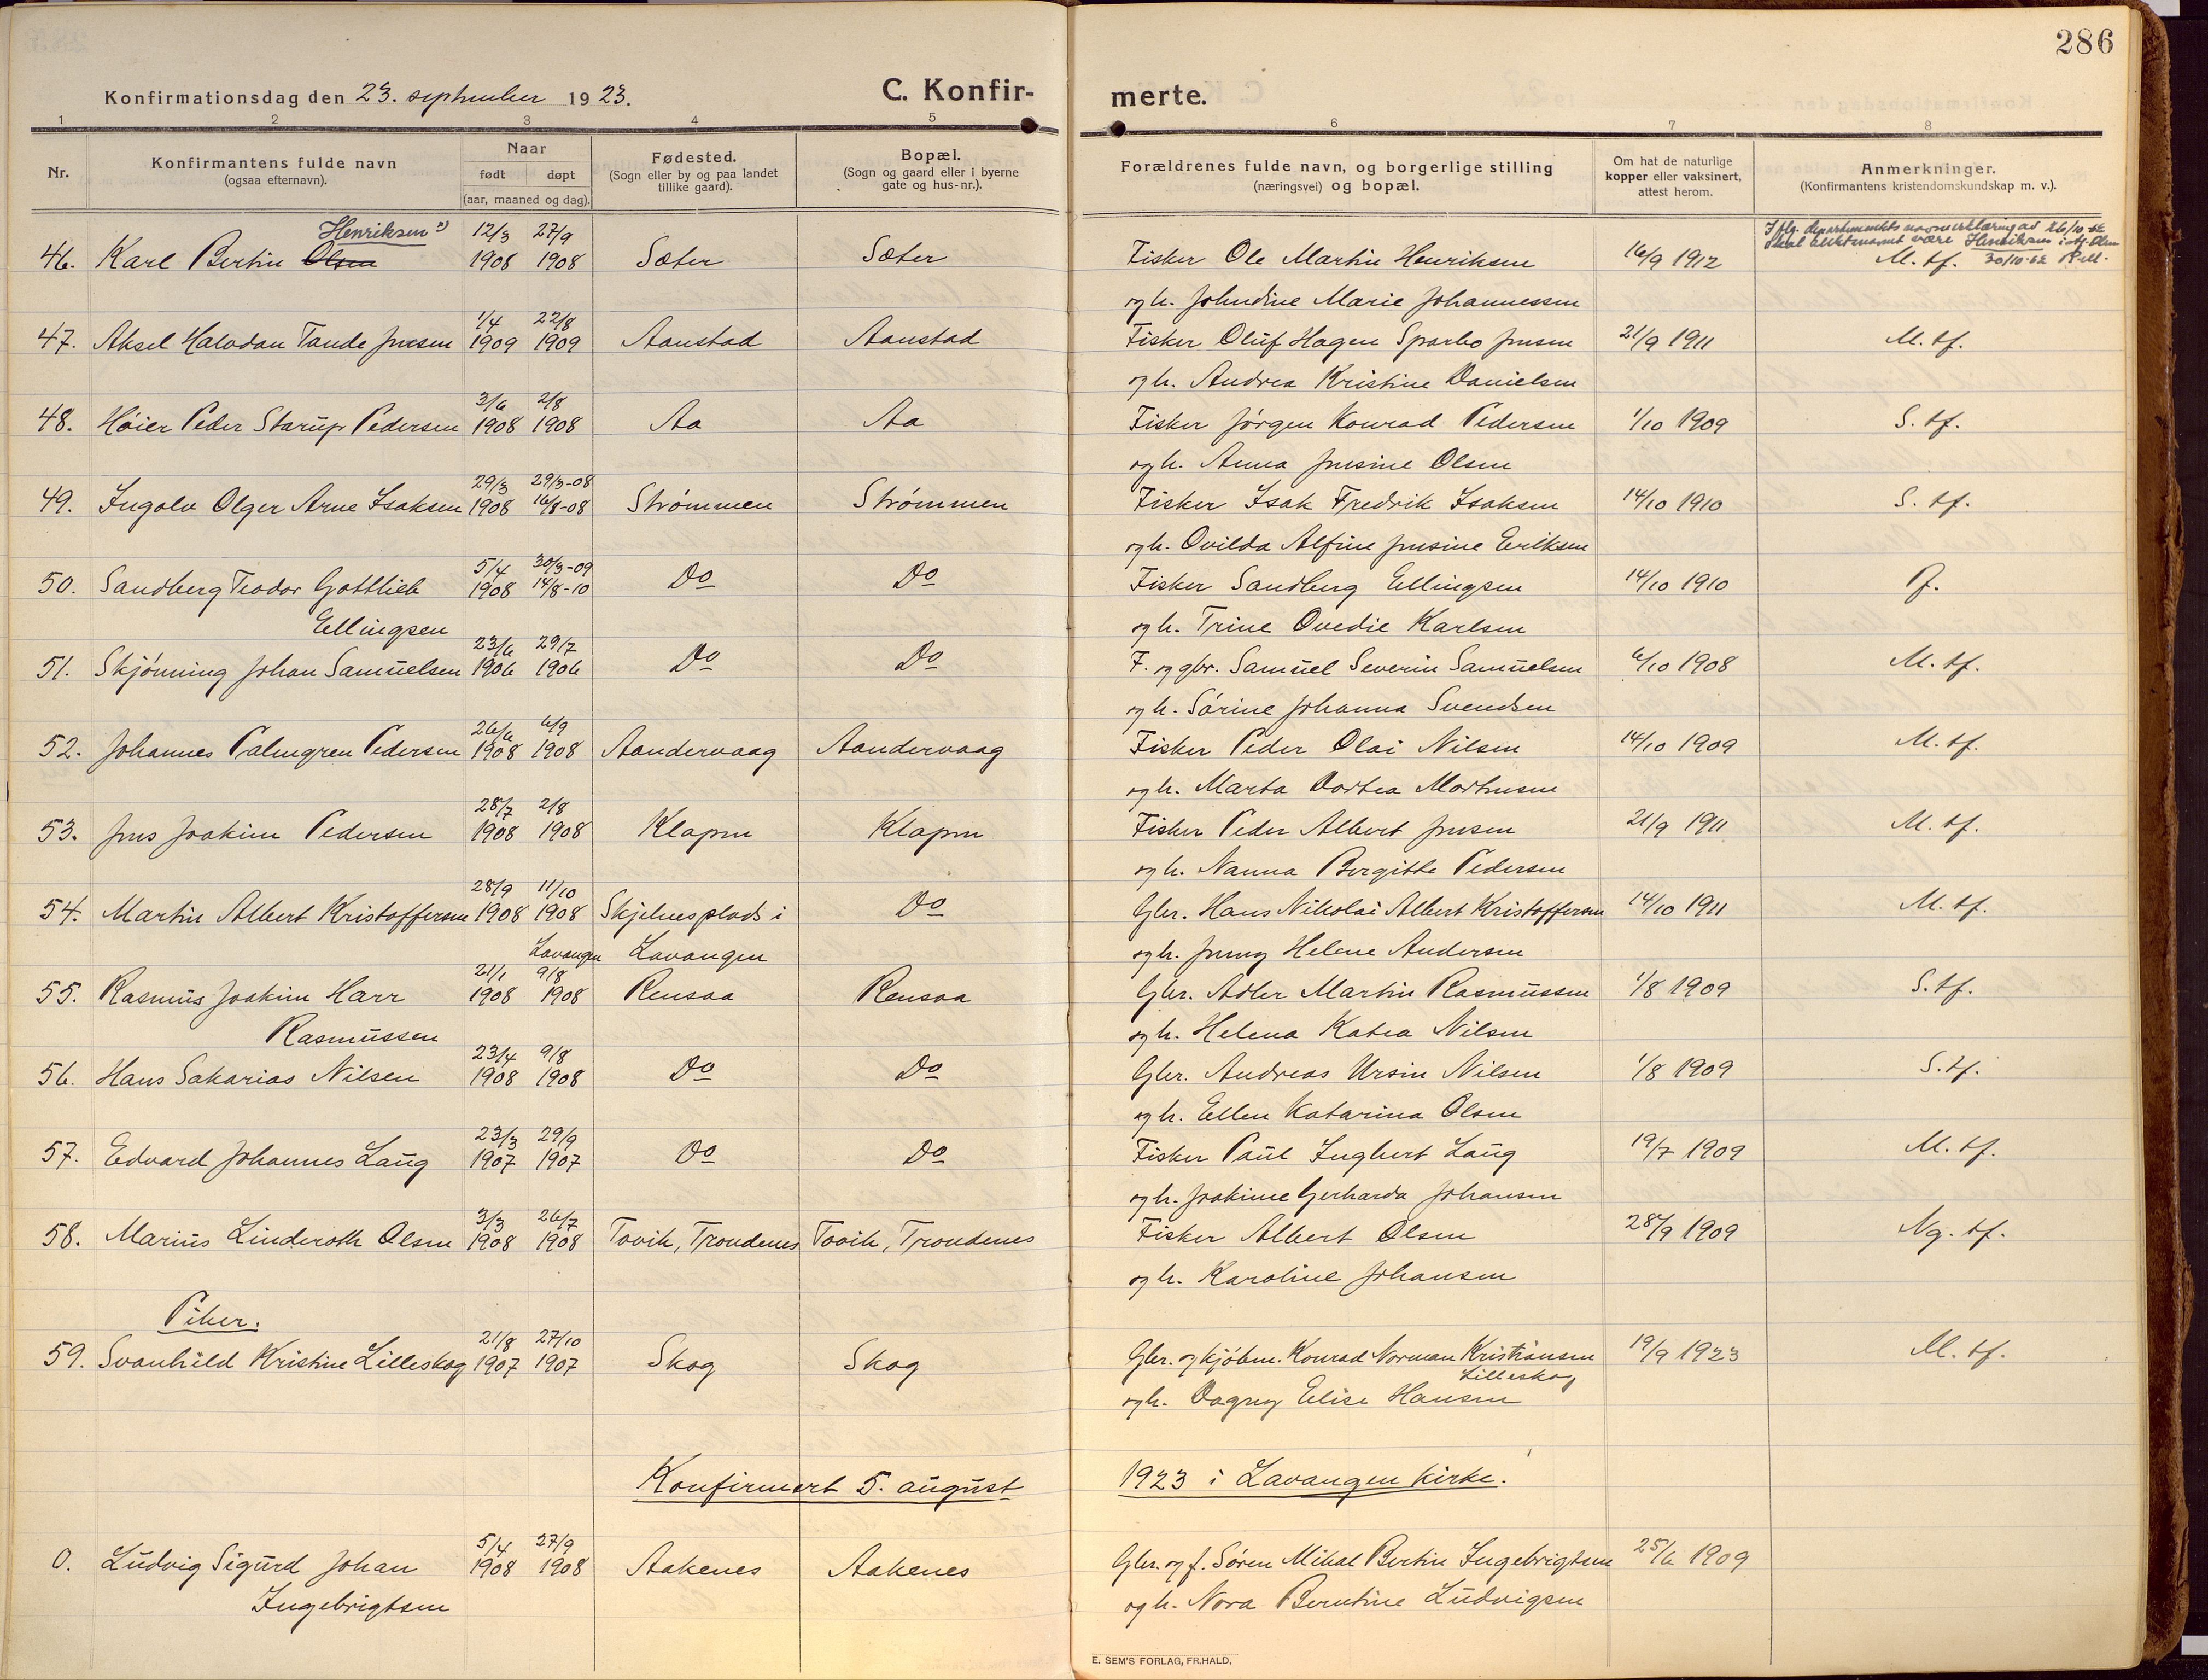 286
Konfirmationsdag den 23. september 1923.
C. Konfirmerte.
1 2 3 4 5 6 7 8
Nr.
Konfirmantens fulde navn
(ogsaa efternavn).
Naar
født døpt
(aar, maaned og dag).
Fødested.
(Sogn eller by og paa landet
tillike gaard).
Bopæl.
(Sogn og gaard eller i byerne
gate og hus-nr.).
Forældrenes fulde navn, og borgerlige stilling
(næringsvei) og bopæl.
Om hat de naturlige
kopper eller vaksinert,
attest herom.
Anmerkninger.
(Konfirmantens kristendomskundskap m. v.).
Henriksen 12/3 27/9 Iflg. departementets navneerklæring av 26/10-62
skal slektsnavnet være Henriksen i st. Olsen
46. Karl Bertin Olsen 1908 1908 Sæter Sæter Fisker Ole Martin Henriksen 16/9 1912 M. tf. 30/10-62
og h. Johndine Marie Johannessen
1/4 22/8
47. Aksel Halvdan Tande Jensen 1909 1909 Aanstad Aanstad Fisker Oluf Hagen Sparbo Jensen 21/9 1911 M. tf.
og h. Andrea Kristine Danielsen
3/6 2/8
48. Høier Peder Starup Pedersen 1908 1908 Aa Aa Fisker Jørgen Konrad Pedersen 1/10 1909 S. tf.
og h. Anna Jensine Olsen
29/3 29/3-08
49. Ingolv Olger Arne Isaksen 1908 16/8-08 Strømmen Strømmen Fisker Isak Fredrik Isaksen 14/10 1910 S. tf.
og h. Ovilda Alfine Jensine Eriksen
5/4 30/3-09
50. Sandberg Teodor Gottlieb 1908 14/8-10 Do Do Fisker Sandberg Ellingsen 14/10 1910
Ellingsen og h. Trine Ovedie Karlsen
23/6 29/7
51. Skjønning Johan Samuelsen 1906 1906 Do Do F. og gbr. Samuel Severin Samuelsen 6/10 1908 M. tf.
og h. Sørine Johanna Svendsen
26/6 6/9
52. Johannes Palmgren Pedersen 1908 1908 Aandervaag Aandervaag Fisker Peder Olai Nilsen 14/10 1909 M. tf.
og h. Marta Dortea Mortensen
28/7 2/8
53. Jens Joakim Pedersen 1908 1908 Klapen Klapen Fisker Peder Albert Jensen 21/9 1911 M. tf.
og h. Nanna Bergitte Pedersen
28/9 11/10
54. Martin Albert Kristoffersen 1908 1908 Skjelnesplads i Do Gbr. Hans Nikolai Albert Kristoffersen 14/10 1911 M. tf.
Lavangen Lavangen og h. Jenny Helene Andersen
21/1 9/8
55. Rasmus Joakim Harr 1908 1908 Rensaa Rensaa Gbr. Adler Martin Rasmussen 1/8 1909 S. tf.
Rasmussen og h. Helena Katea Nilsen
23/4 9/8
56. Hans Sakarias Nilsen 1908 1908 Do Do Gbr. Andreas Ursin Nilsen 1/8 1909 S. tf.
og h. Ellen Katarina Olsen
23/3 29/9
57. Edvard Johannes Laug 1907 1907 Do Do Fisker Paul Ingbert Laug 19/7 1909 M. tf.
og h. Joakime Gerharda Johansen
3/3 26/7
58. Marius Linderoth Olsen 1908 1908 Tovik, Trondenes Tovik, Trondenes Fisker Albert Olsen 28/9 1909 Ng. tf.
og h. Karoline Johansen
Piker.
21/8 27/10
59. Svanhild Kristine Lilleskog 1907 1907 Skog Skog Gbr. og kjøbm. Konrad Norman Kristiansen 19/9 1923 M. tf.
Lilleskog
og h. Dagny Elise Hansen
Konfirmert 5. august 1923 i Lavangen kirke.
5/4 27/9
0. Ludvig Sigurd Johan 1908 1908 Aakenes Aakenes Gbr. og f. Søren Mikal Bertin Ingebrigtsen 25/6 1909
Ingebrigtsen og h. Nora Berntine Ludvigsen
E. SEM'S FORLAG, FR.HALD,